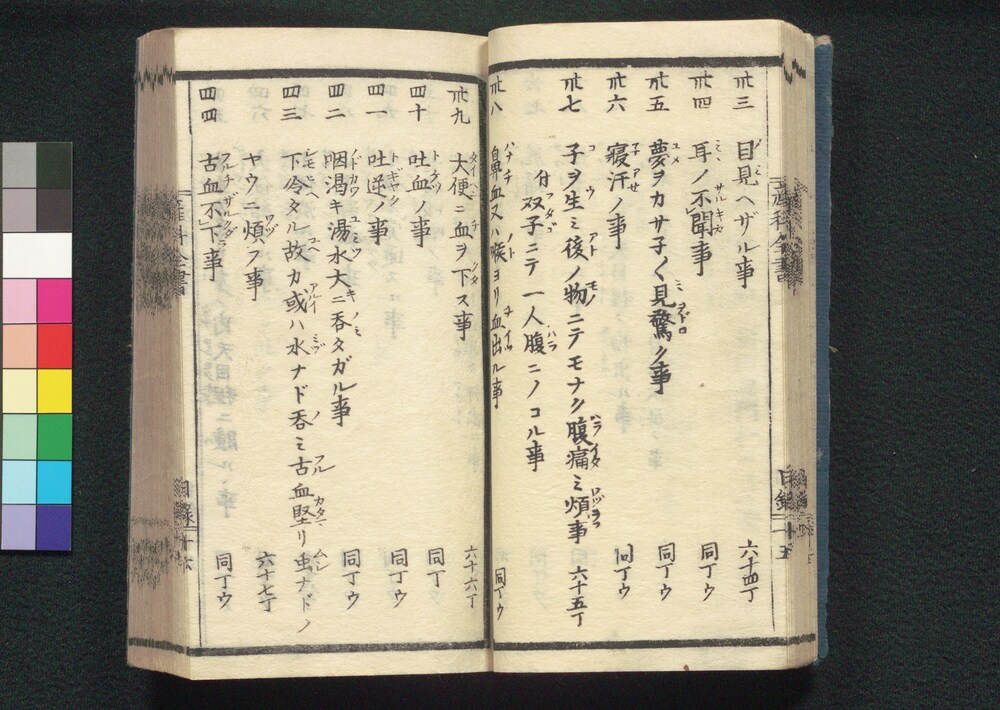 卅三 目見ヘザル事 六十四丁
卅四 耳ノ不聞事 同丁ウ
卅五 夢ヲカサ子〱見驚ク事 同丁ウ
卅六 寝汗ノ事 同丁ウ
卅七 子ヲ生ミ後ノ物ニテモナク腹痛ミ煩事 六十五丁
付 双子ニテ一人腹ニノコル事
卅八 鼻血又ハ喉ヨリ血出ル事 同丁ウ
産科全書 目録 十五
卅九 大便ニ血ヲ下ス事 六十六丁
四十 吐血ノ事 同丁
四一 吐逆ノ事 同丁ウ
四二 咽渇キ湯水大ニ呑タガル事 同丁ウ
四三 下冷タル故カ或ハ水ナド呑ミ古血堅リ虫ナドノ
ヤウニ煩フ事 六十七丁
四四 古血不下事 同丁ウ
産科全書 目録 十六